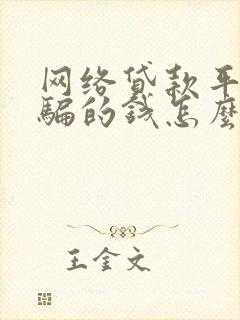 网络贷款平
骗的钱怎麽
王金文